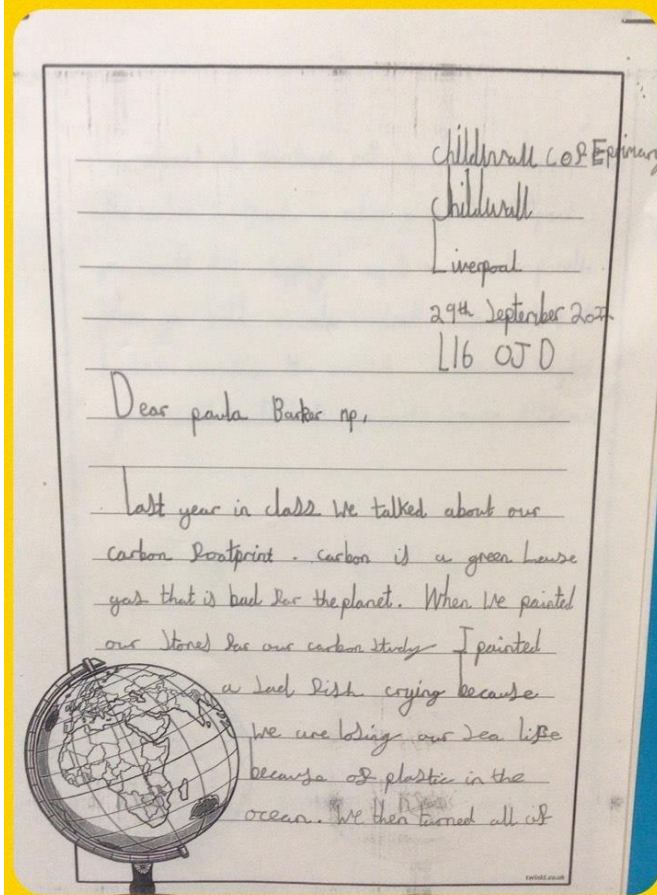 childwall C of E primary
childwall
Liverpool
29th September
L16 0JD
Dear paula Barker mp,
Last year in class we talked about our
carbon footprint. carbon is a green house
gas that is bad for the planet. When we painted
our stones for our carbon study I painted
a sad fish crying because
we are losing our sea life
because of plastic in the
ocean. We then turned all of
twinkl.co.uk